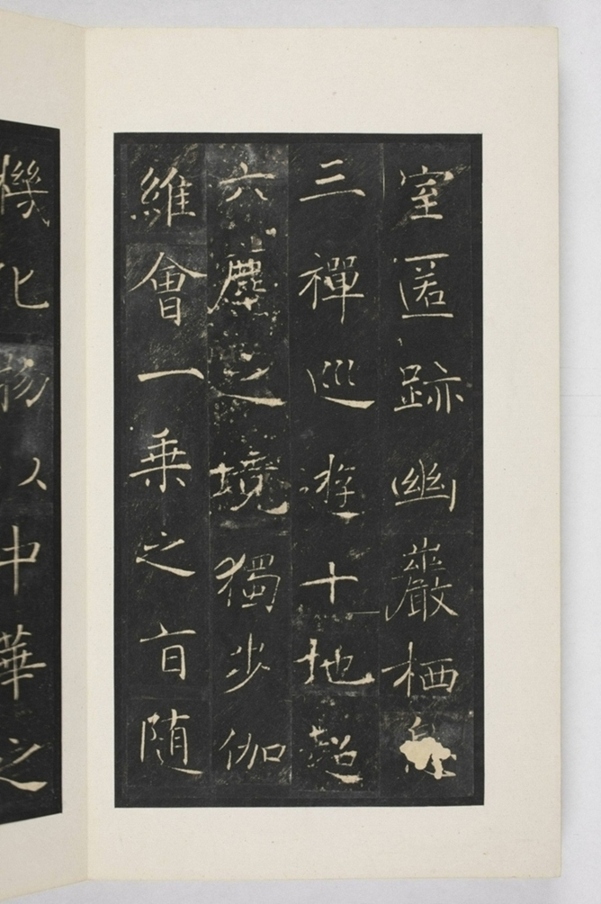 室匿跡幽巖栖息
三禪巡遊十地超
六塵之境獨步伽
維會一乘之旨隨
機化物以中華之